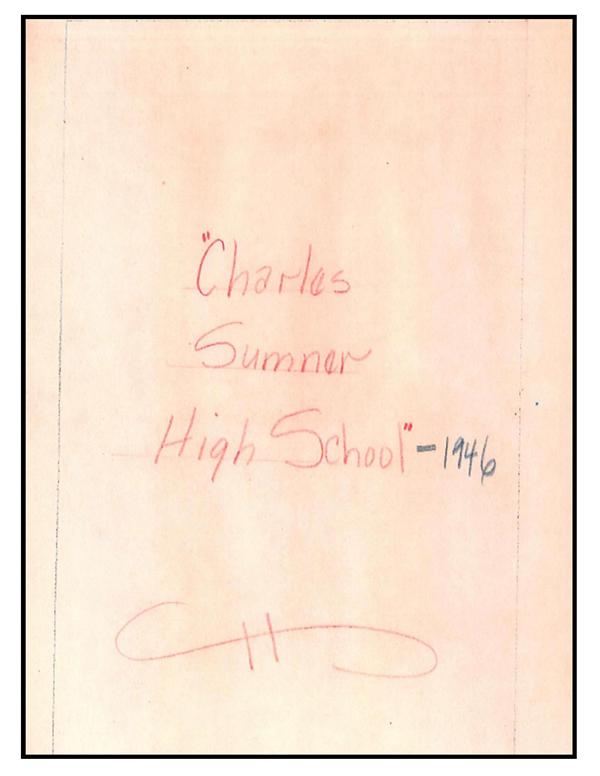 "Charles
Sumner
High School"-1946